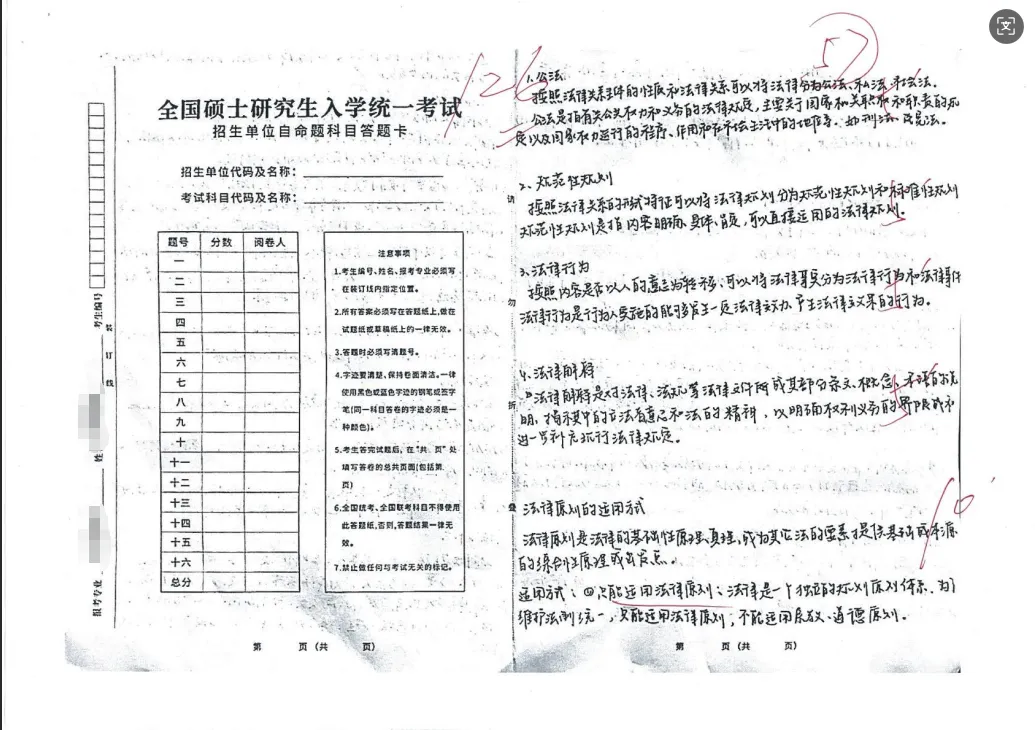 全国硕士研究生入学统一考试
招生单位自命题科目答题卡
招生单位代码及名称:
考试科目代码及名称:
题号 分数 阅卷人
一
二
三
四
五
六
七
八
九
十
十一
十二
十三
十四
十五
十六
总分
注意事项
1.考生编号、姓名、报考专业必须写
在装订线内指定位置。
2.所有答案必须写在答题纸上,做在
试题纸或草稿纸上的一律无效。
3.答题时必须写清题号。
4.字迹要清楚、保持卷面清洁。一律
使用黑色或蓝色字迹的钢笔或签字
笔(同一科目答卷的字迹必须是一
种颜色)。
5.考生答完试题后,在"共 页"处
填写答卷的总共页面(包括第
页)
6.全国统考、全国联考科目不得使用
此答题纸,否则,答题结果一律无
效。
7.禁止做任何与考试无关的标记。
考生编号
姓
报考专业
答
订
线
第 页 (共 页)
126
57
1.公法
按照法律关系主体的性质和法律关系可以将法律分为公法、私法、社会法。
公法是指有关公共权力和义务的法律规定,主要关于国家机关职权和职责的规
定以及国家权力运行的程序、作用和在社会生活中的地位等。如刑法、民宪法。
请
2、规范性规则
按照法律关系的形式特征可以将法律规则分为规范性规则和标准性规则
规范性规则是指内容明确、具体、肯定,可以直接运用的法律规则。
勿
3、法律行为
按照内容是否以人的意志为转移,可以将法律事实分为法律行为和法律事件
法律行为是行为人实施的能够发生一定法律效力、产生法律效果的行为。
4、法律解释
法律解释是对法律、法规等法律文件所或其部分条文、概念、术语的说
明,揭示其中的立法者意志和法的精神,以明确权利义务的界限或
进一步补充现行法律规定。
折
叠
法律原则的适用方式
10
法律原则是法律的基础性原理、真理,或为其它法的要素提供基础或本源
的综合性原理或出发点。
适用方式:只能适用法律原则:法律是一个独立的规则原则体系,为了
维护法制统一,只能适用法律原则;不能适用、道德原则。
第 页 (共 页)